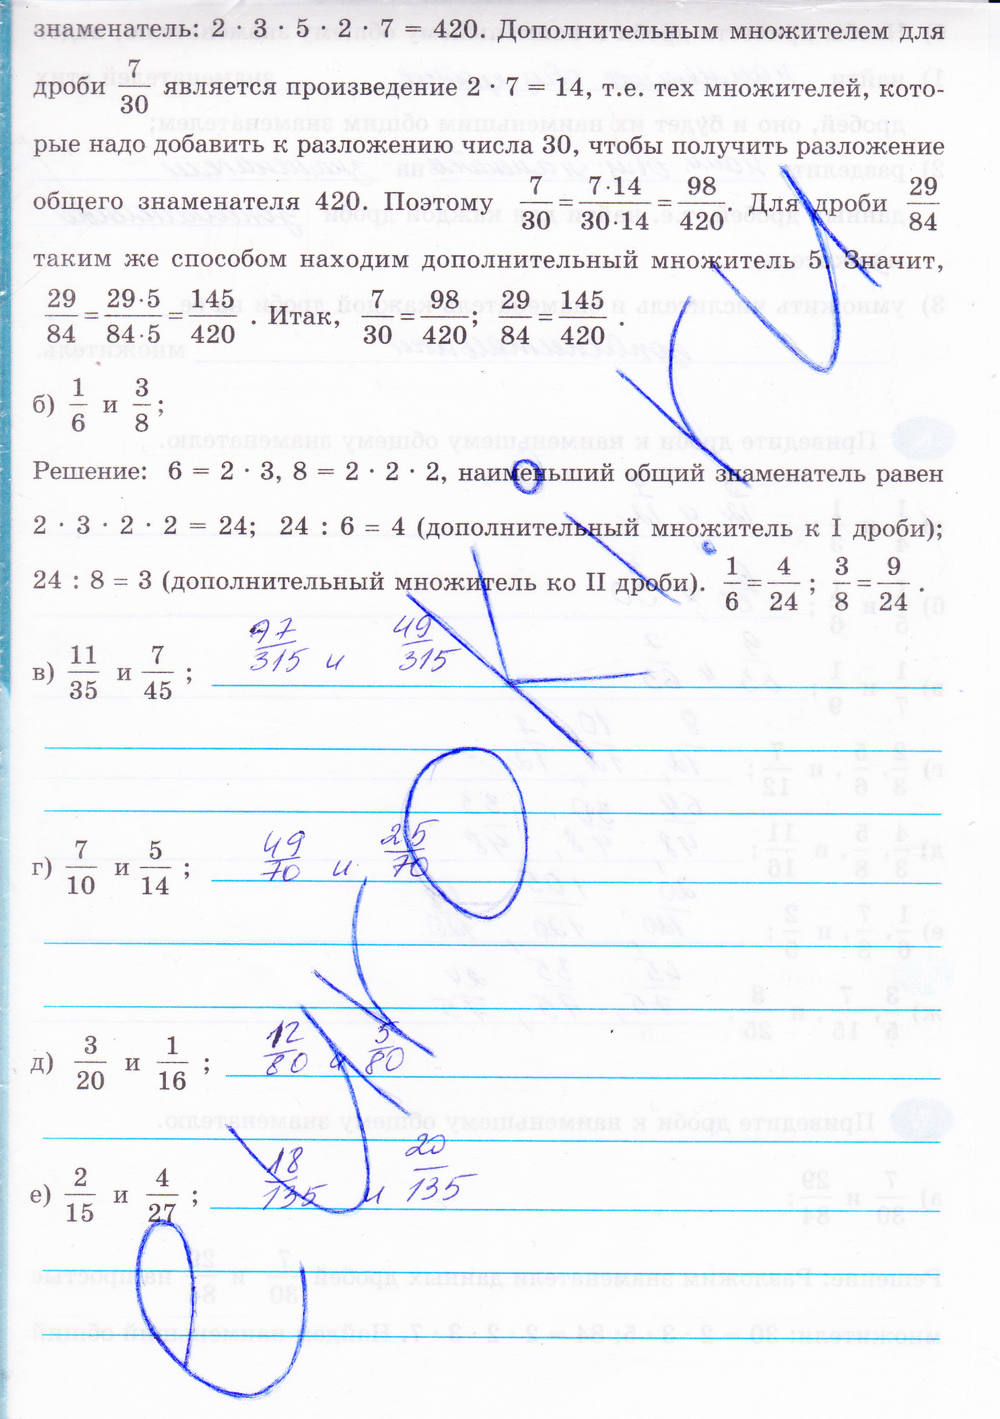 знаменатель: 2 · 3 · 5 · 2 · 7 = 420. Дополнительным множителем для
дроби 7/30 является произведение 2 · 7 = 14, т.е. тех множителей, кото-
рые надо добавить к разложению числа 30, чтобы получить разложение
общего знаменателя 420. Поэтому 7/30 = 7·14/30·14 = 98/420. Для дроби 29/84
таким же способом находим дополнительный множитель 5. Значит,
29/84 = 29·5/84·5 = 145/420. Итак, 7/30 = 98/420; 29/84 = 145/420.
б) 1/6 и 3/8;
Решение: 6 = 2 · 3, 8 = 2 · 2 · 2, наименьший общий знаменатель равен
2 · 3 · 2 · 2 = 24; 24 : 6 = 4 (дополнительный множитель к I дроби);
24 : 8 = 3 (дополнительный множитель ко II дроби). 1/6 = 4/24; 3/8 = 9/24.
в) 11/35 и 7/45; 97/315 и 49/315
г) 7/10 и 5/14; 49/70 и 25/70
д) 3/20 и 1/16; 12/80 и 5/80
е) 2/15 и 4/27; 18/135 и 20/135